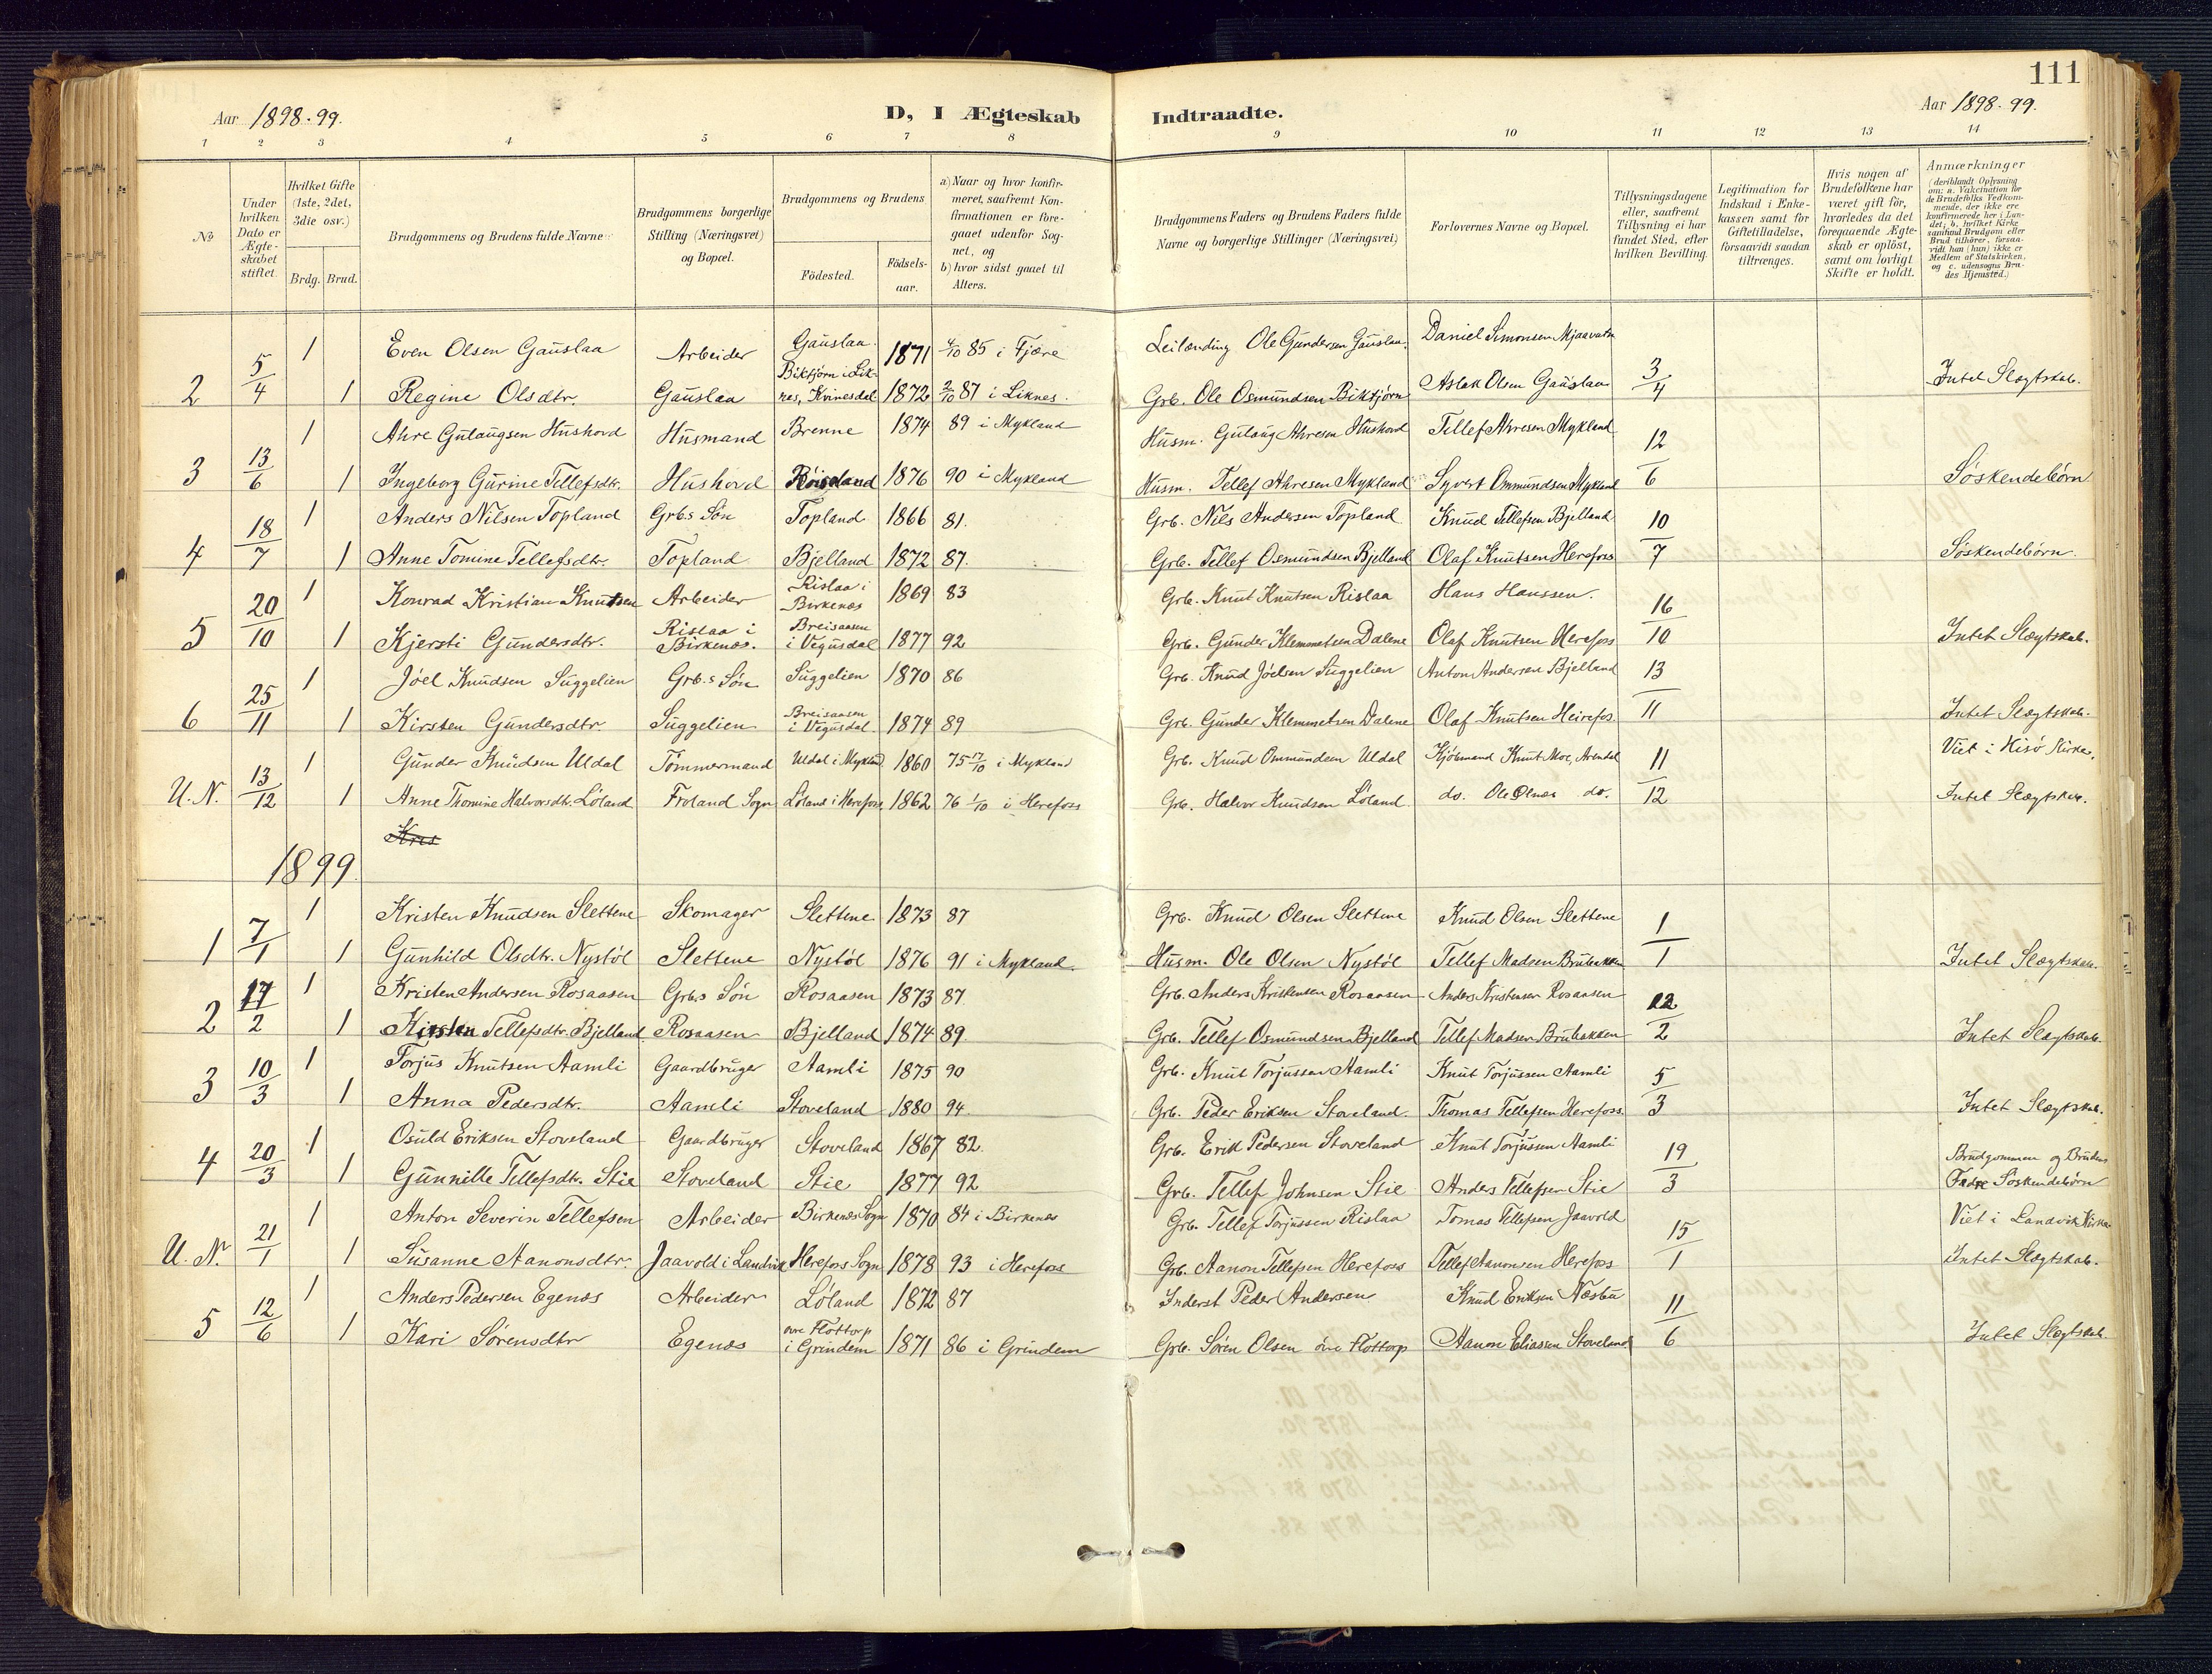 111
Aar 1898-99. D, I Ægteskab Indtraadte. Aar 1898-99.
1 2 3 4 5 6 7 8 9 10 11 12 13 14
No
Under hvilken Dato er Ægteskabet stiftet.
Hvilket Gifte (1ste, 2det, 3die osv.)
Brdg. Brud.
Brudgommens og Brudens fulde Navne
Brudgommens borgerlige Stilling (Næringsvei) og Bopæl.
Brudgommens og Brudens
Födested.
Födselsaar.
a) Naar og hvor konfirmeret, saafremt Konfirmationen er foregaaet udenfor Sognet, og
b) hvor sidst gaaet til Alters.
Brudgommens Faders og Brudens Faders fulde Navne og borgerlige Stillinger (Næringsvei)
Forlovernes Navne og Bopæl.
Tillysningsdagene eller, saafremt Tillysning ei har fundet Sted, efter hvilken Bevilling.
Legitimation for Indskud i Enkekassen samt for Giftetilladelse, forsaavidt saadan tiltrænges.
Hvis nogen af Brudefolkene har været gift för, hvorledes da det foregaaende Ægteskab er oplöst, samt om lovligt Skifte er holdt.
Anmærkninger
(deriblandt Oplysning om: a. Vakcination for de Brudefolks Vedkommende, der ikke ere konfirmerede her i Landet; b. hvilket Kirkesamfund Brudgom eller Brud tilhörer, forsaavidt han (hun) ikke er Medlem af Statskirken, og c. udensogns Brudes Hjemsted.)
1 Even Olsen Gauslaa Arbeider Gauslaa 1871 4/10 85 i Fjære Leilænding Ole Gundersen Gauslaa. Daniel Simonsen Mjaavatn
2 5/4 1 Regine Olsdtr. Gauslaa Biktjørn i Liknes, Kvinesdal 1872 2/10 87 i Liknes. Grb. Ole Osmundsen Biktjørn Aslak Olsen Gauslaa 3/4 Intet Slægtskab.
1 Ahre Gulaugsen Hushovd Husmand Brenne 1874 89 i Mykland Husm. Gulaug Ahresen Hushovd Tellef Ahresen Mykland
3 13/6 1 Ingeborg Gurine Tellefsdtr. Hushovd Røiseland 1876 90 i Mykland Husm. Tellef Ahresen Mykland Syvert Ommundsen Mykland 12/6 Søskendebørn
1 Anders Nilsen Topland Grb.s Søn Topland 1866 81. Grb. Nils Andersen Topland Knud Tellefsen Bjelland
4 18/7 1 Anne Tomine Tellefsdtr. Topland Bjelland 1872 87. Grb. Tellef Osmundsen Bjelland Olaf Knutsen Herefoss 10/7 Søskendebørn.
1 Konrad Kristian Knutsen Arbeider Rislaa i Birkenæs 1869 83 Grb. Knut Knutsen Rislaa Hans Hanssen.
5 20/10 1 Kjersti Gundersdtr. Rislaa i Birkenæs. Breisaasen i Vegusdal 1877 92 Grb. Gunder Klemmetsen Dalene Olaf Knutsen Herefoss 16/10 Intet Slægtskab.
1 Jóel Knudsen Suggelien Grb.s Søn Suggelien 1870 86 Grb. Knud Jóelsen Suggelien Anton Andersen Bjelland
6 25/11 1 Kirsten Gundersdtr. Suggelien Breisaasen i Vegusdal 1874 89 Grb. Gunder Klemmetsen Dalene Olaf Knutsen Heirefos. 13/11 Intet Slægtskab.
1 Gunder Knudsen Uldal Tømmermand Uldal i Mykland 1860 75 17/10 i Mykland Grb. Knud Ommundsen Uldal Kjøbmand Knut Moe, Arendal Viet i Hisø Kirke.
U.N. 13/12 1 Anne Thomine Halvorsdtr. Løland Froland Sogn Løland i Herefoss 1862 76 1/10 i Herefoss Grb. Halvor Knudsen Løland do. Ole do. 11/12 Intet Slægtskab.
Kris
1899
1 Kristen Knudsen Slettene Skomager Slettene 1873 87 Grb. Knud Olsen Slettene Knud Olsen Slettene
1 7/1 1 Gunhild Olsdtr. Nystøl Slettene Nystøl 1876 91 i Mykland. Husm. Ole Olsen Nystøl Tellef Madsen Brubakken 1/1 Intet Slægtskab.
1 Kristen Andersen Rosaasen Grb.s Søn Rosaasen 1873 87. Grb. Anders Kristensen Rosaasen Anders Kristensen Rosaasen
2 17/2 1 Kirsten Tellefsdtr. Bjelland Rosaasen Bjelland 1874 89. Grb. Tellef Osmundsen Bjelland Tellef Madsen Brubakken 12/2 Intet Slægtskab.
1 Torjus Knutsen Aamli Gaardbruger Aamli 1875 90 Grb. Knut Torjussen Aamli Knut Torjussen Aamli
3 10/3 1 Anna Pedersdtr. Aamli Stoveland 1880 94. Grb. Peder Eriksen Stoveland. Thomas Tellefsen Herefoss. 5/3 Intet Slægtskab.
1 Osuld Eriksen Stoveland Gaardbruger Stoveland 1867 82. Grb. Erik Pedersen Stoveland Knut Torjussen Aamli
4 20/3 1 Gunnille Tellefsdtr. Stie Stoveland Stie 1877 92 Grb. Tellef Johnsen Stie Anders Tellefsen Stie 19/3 Brudgommen og Brudens Fadre Søskendebørn
1 Anton Severin Tellefsen Arbeider Birkenes Sogn 1870 84 i Birkenæs Grb. Tellef Torjussen Rislaa Tomas Tellefsen Jaavold Viet i Landvik Kirke
U.N. 21/1 1 Susanne Aanonsdtr. Jaavold i Landvik Herefoss Sogn 1878 93 i Herefoss Grb. Aanon Tellefsen Herefoss Tellef Aanonsen Herefoss 15/1 Intet Slægtskab.
1 Anders Pedersen Egenæs Arbeider Løland 1872 87 Inderst Peder Andersen Knud Eriksen Næsbu
5 12/6 1 Kari Sørensdtr Egenæs øvre Flottorp i Grindem 1871 86 i Grindem Grb. Søren Olsen øvre Flottorp Aanon Eliassen Stoveland 11/6 Intet Slægtskab.